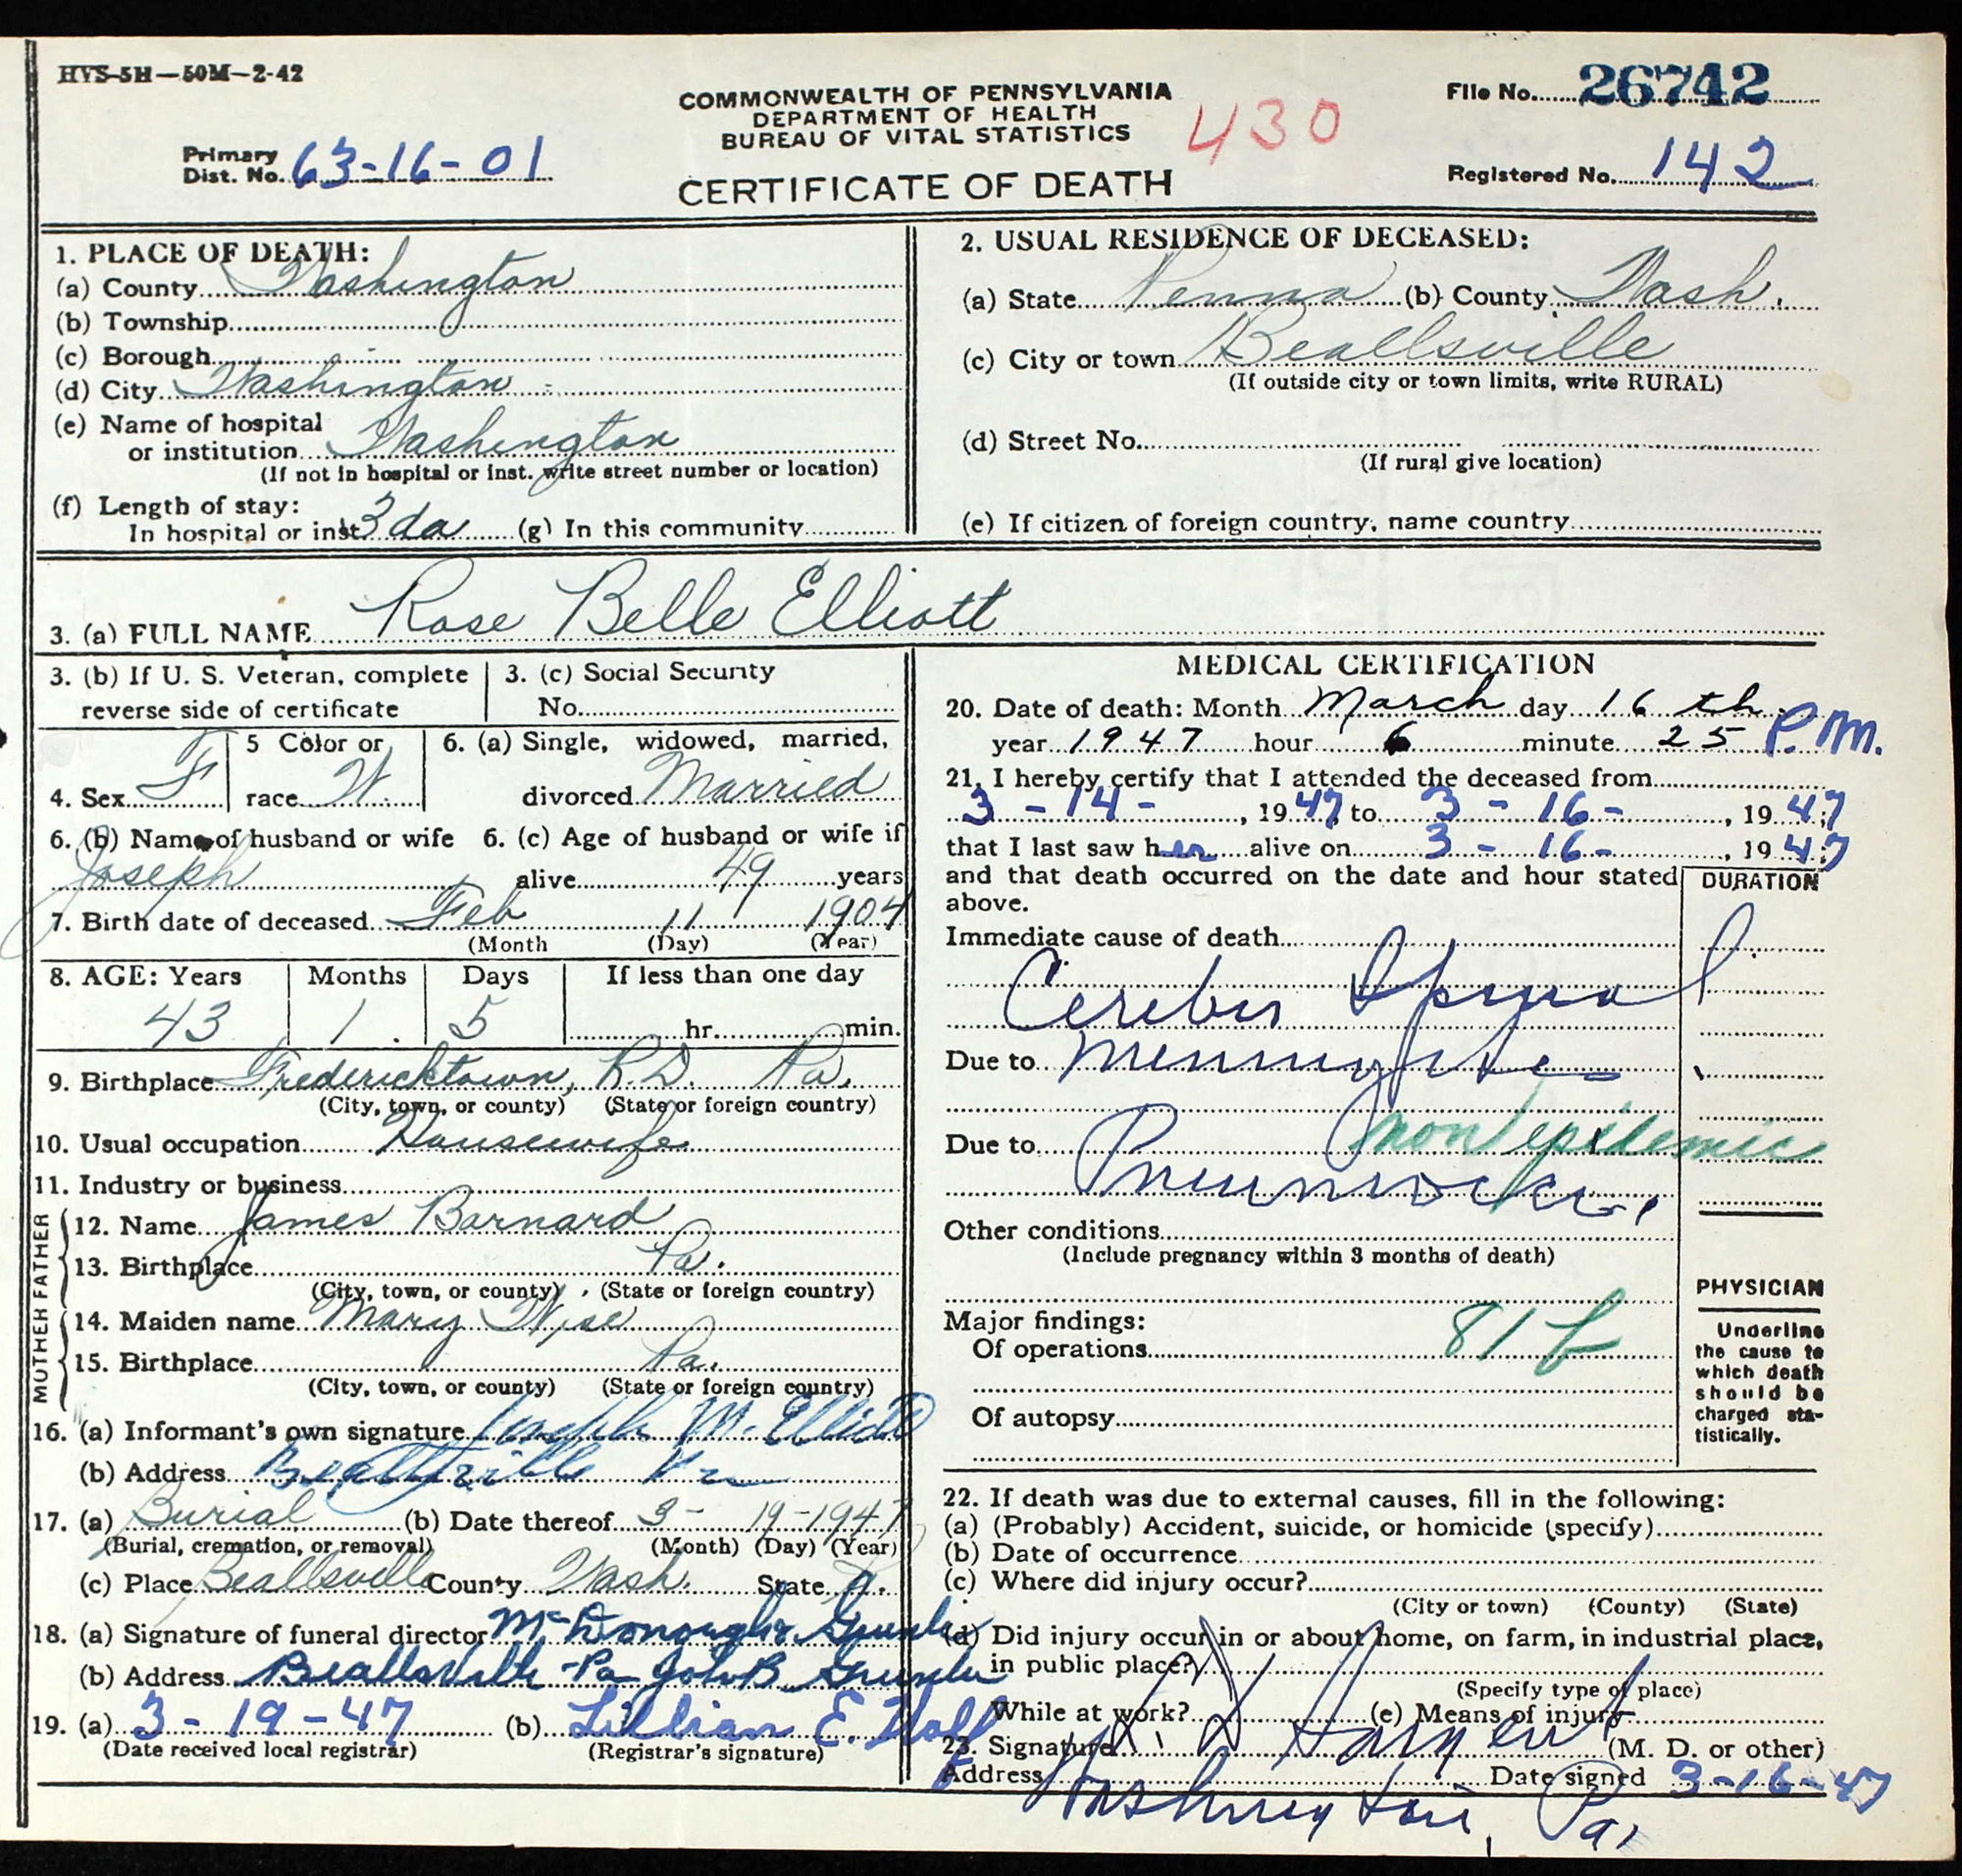 HVS-5H—50M—2-42
COMMONWEALTH OF PENNSYLVANIA
DEPARTMENT OF HEALTH
BUREAU OF VITAL STATISTICS
430
File No. 26742
Primary
Dist. No. 63-16-01
Registered No. 142
CERTIFICATE OF DEATH
1. PLACE OF DEATH:
(a) County Washington
(b) Township
(c) Borough
(d) City Washington
(e) Name of hospital
or institution Washington
(If not in hospital or inst. write street number or location)
(f) Length of stay:
In hospital or inst 3 da (g) In this community
2. USUAL RESIDENCE OF DECEASED:
(a) State Penna (b) County Wash.
(c) City or town Beallsville
(If outside city or town limits, write RURAL)
(d) Street No.
(If rural give location)
(e) If citizen of foreign country, name country
3. (a) FULL NAME Rose Belle Elliott
3. (b) If U. S. Veteran, complete
reverse side of certificate
3. (c) Social Security
No.
4. Sex F
5 Color or
race W.
6. (a) Single, widowed, married,
divorced Married
6. (b) Name of husband or wife
Joseph
6. (c) Age of husband or wife if
alive 49 years
7. Birth date of deceased Feb 11 1904
(Month (Day) (Year)
8. AGE: Years Months Days If less than one day
43 1 5 hr. min.
9. Birthplace Fredericktown, R.D. Pa.
(City, town, or county) (State or foreign country)
10. Usual occupation Housewife
11. Industry or business
FATHER
12. Name James Barnard
13. Birthplace Pa.
(City, town, or county) (State or foreign country)
MOTHER
14. Maiden name Mary Wise
15. Birthplace Pa.
(City, town, or county) (State or foreign country)
16. (a) Informant's own signature Joseph M. Elliott
(b) Address Beallsville Pa
17. (a) Burial (b) Date thereof 3- 19-1947
(Burial, cremation, or removal) (Month) (Day) (Year)
(c) Place Beallsville County Wash. State Pa.
18. (a) Signature of funeral director McDonough &
(b) Address Beallsville - Pa John B.
19. (a) 3-19-47 (b) Lillian E.
(Date received local registrar) (Registrar's signature)
MEDICAL CERTIFICATION
20. Date of death: Month March day 16 th
year 1947 hour 6 minute 25 P.M.
21. I hereby certify that I attended the deceased from
3-14-, 1947 to 3-16-, 1947;
that I last saw her alive on 3-16-, 1947;
and that death occurred on the date and hour stated
above.
DURATION
Immediate cause of death
Cerebro Spinal
Due to Meningitis
non epidemic
Due to
81 b
Other conditions
(Include pregnancy within 3 months of death)
Major findings:
Of operations
Of autopsy
PHYSICIAN
Underline
the cause to
which death
should be
charged sta-
tistically.
22. If death was due to external causes, fill in the following:
(a) (Probably) Accident, suicide, or homicide (specify)
(b) Date of occurrence
(c) Where did injury occur?
(City or town) (County) (State)
(d) Did injury occur in or about home, on farm, in industrial place,
in public place?
(Specify type of place)
While at work? (e) Means of injury
23. Signature (M. D. or other)
Address Washington, Pa. Date signed 3-16-47